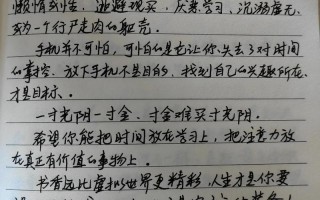 懒惰到性，逃避现实，厌恶学习，沉溺虚无，
成为一个行尸走肉的躯壳。
手机并不可怕，可怕的是它让你失去了对时间
的掌控，放下手机不是目的，找到自己的兴趣所在，
才是目标。
一寸光阴一寸金，寸金难买寸光阴。
希望你能把时间放在学习上，把注意力放
在真正有价值的事物上。
书香远比虚拟世界更精彩，人生才是你要